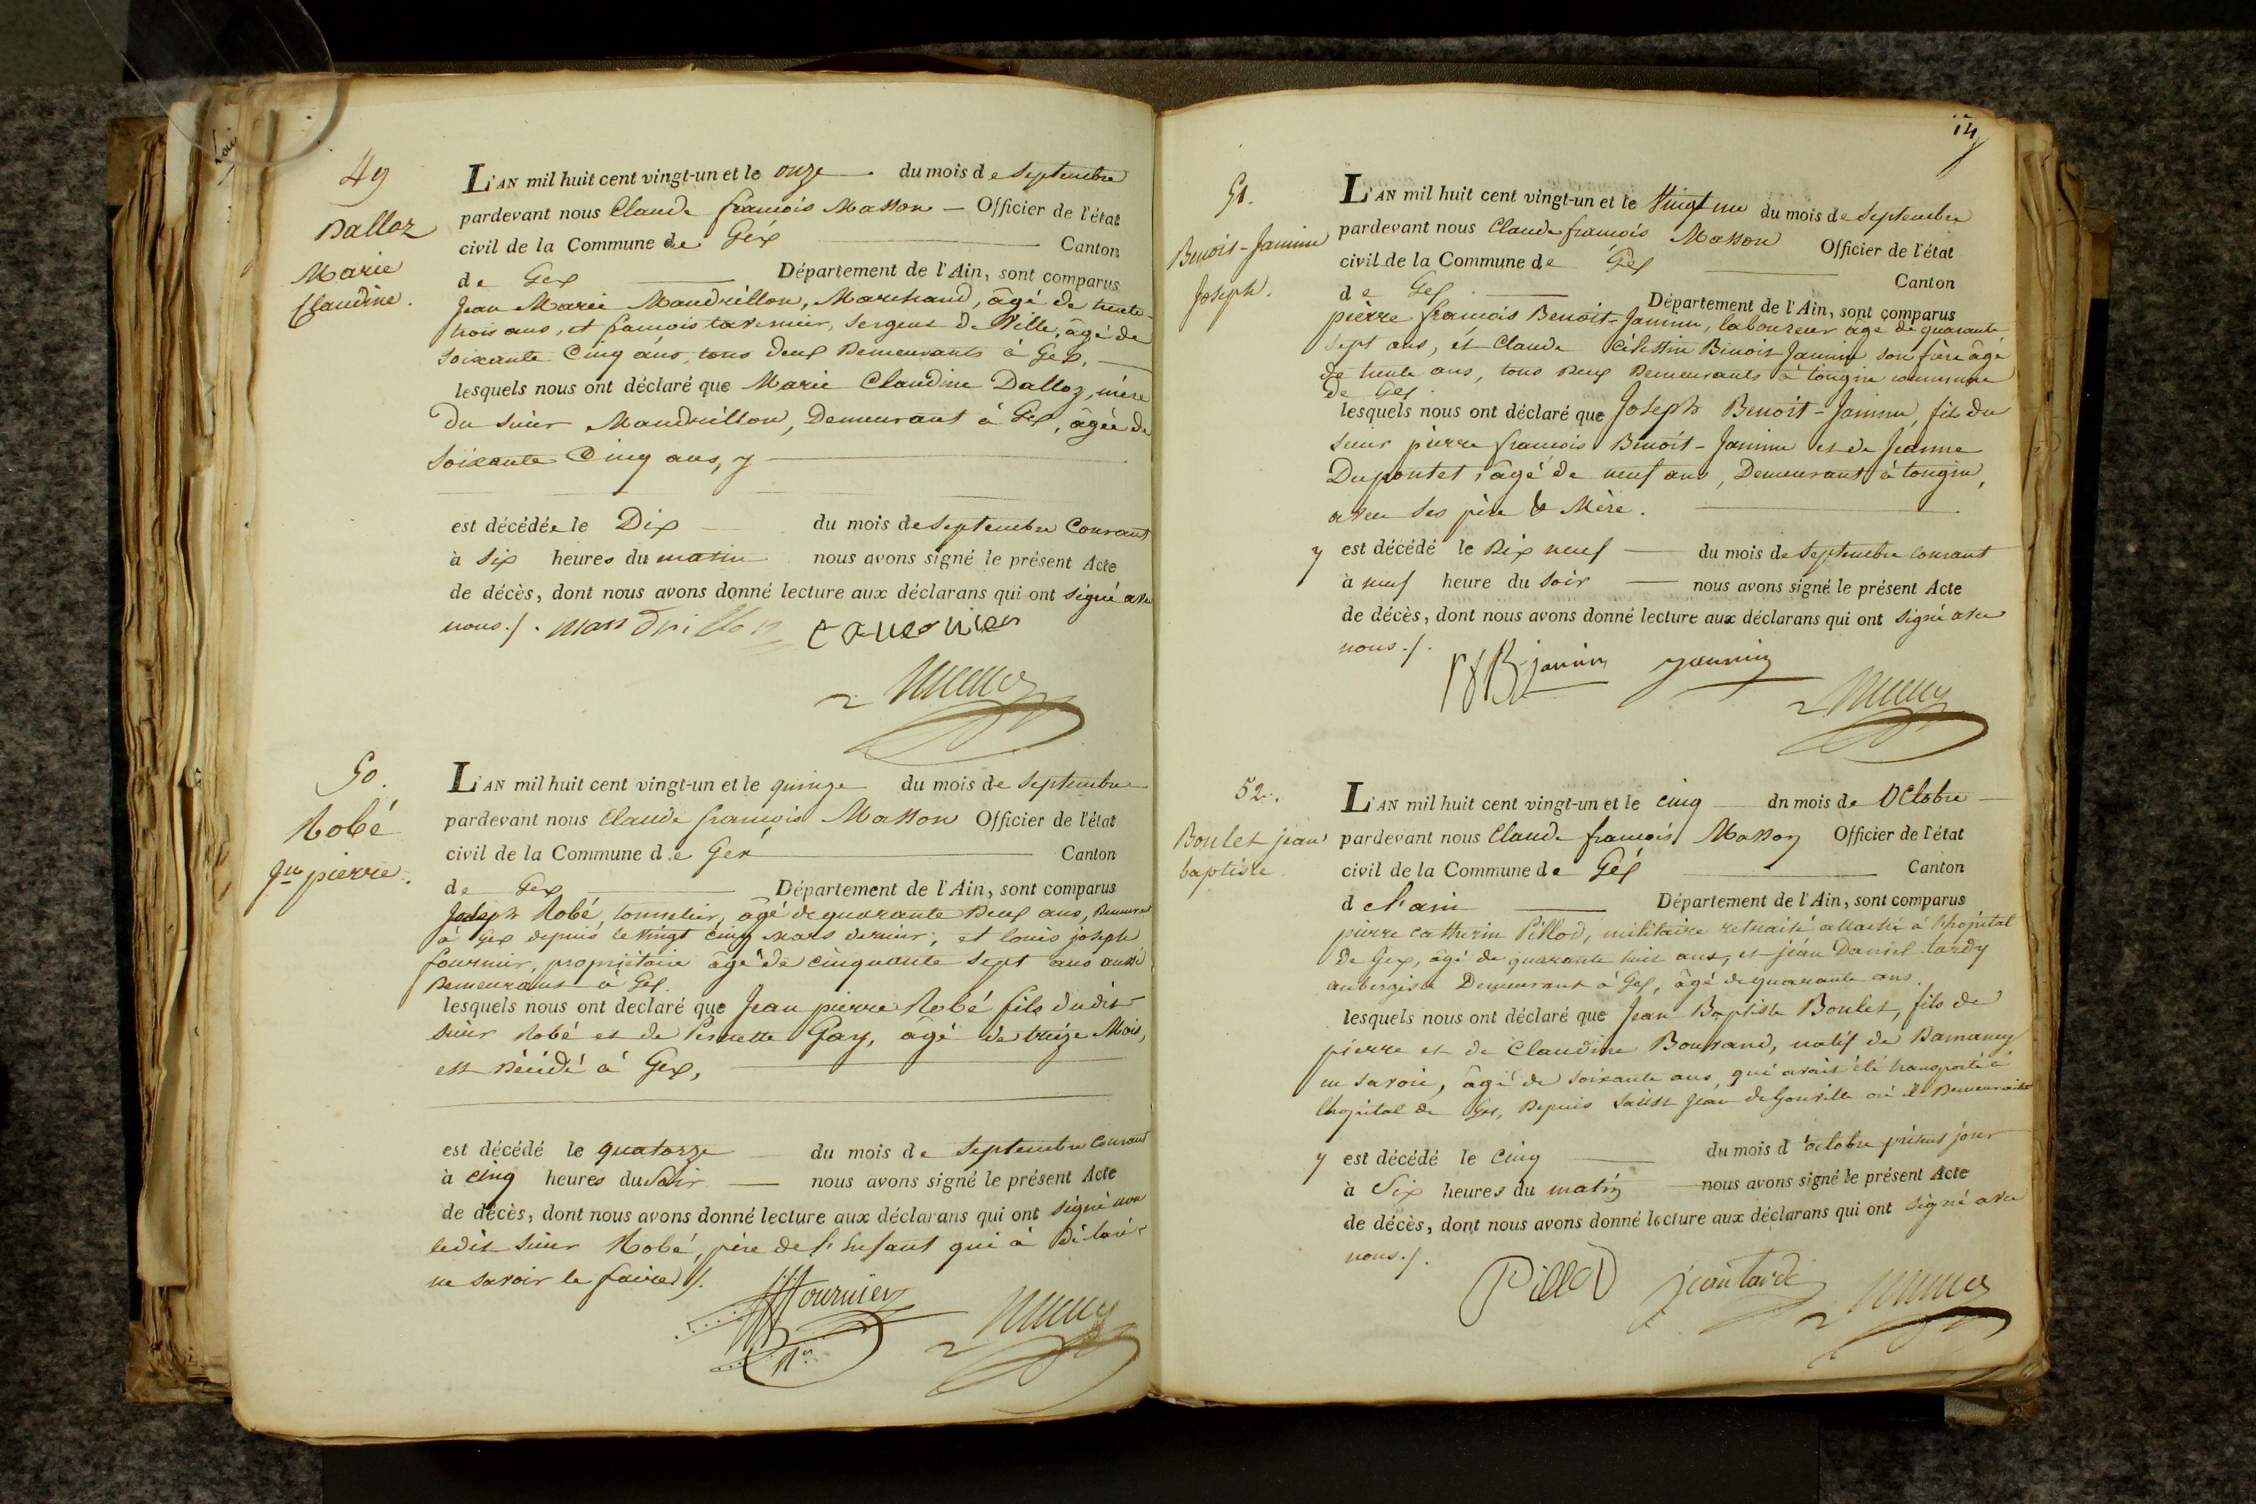 49
Dalloz
Marie
Claudine.
L'AN mil huit cent vingt-un et le onze du mois de Septembre
pardevant nous Claude françois Masson — Officier de l'état
civil de la Commune de Gex Canton
de Gex Département de l'Ain, sont comparus
Jean Marie Mandrillon, Marchand, âgé de trente-
trois ans, et françois tavernier, Sergent De Ville, âgé de
soixante Cinq ans, tous deux Demeurants à Gex.
lesquels nous ont déclaré que Marie Claudine Dalloz, mère
Du sieur Mandrillon, Demeurant à Gex, âgée de
soixante Cinq ans, y
est décédée le Dix du mois de septembre Courant
à Six heures du matin nous avons signé le présent Acte
de décès, dont nous avons donné lecture aux déclarans qui ont signé avec
nous./. mandrillon tavernier
50.
Robé
Jn pierre.
L'AN mil huit cent vingt-un et le quinze du mois de Septembre
pardevant nous Claude françois Masson Officier de l'état
civil de la Commune de Gex Canton
de Gex Département de l'Ain, sont comparus
Joseph Robé, tonnelier, âgé de quarante Deux ans, Demeurant
à Gex depuis le vingt cinq Mars dernier, et louis joseph
fournier, propriétaire âgé de cinquante Sept ans aussi
Demeurant à Gex.
lesquels nous ont declaré que Jean pierre Robé fils dudit
sieur Robé et de Pernette Gay, âgé de treize Mois,
est Décédé à Gex,
est décédé le quatorze du mois de Septembre Courant
à cinq heures du Soir nous avons signé le présent Acte
de décès, dont nous avons donné lecture aux déclarans qui ont signé non
ledit sieur Robé, père de l'Enfant qui à Déclaré
ne savoir le faire ./.
fournier
14
51.
Benoit-Janin
Joseph.
L'AN mil huit cent vingt-un et le Vingt un du mois de Septembre
pardevant nous Claude françois Masson Officier de l'état
civil de la Commune de Gex Canton
de Gex Département de l'Ain, sont comparus
pierre françois Benoit-Janin, laboureur âgé de quarante
Sept ans, et Claude Célestin Benoit Janin son frère âgé
de trente ans, tous Deux Demeurants à tougin commune
de Gex
lesquels nous ont déclaré que Joseph Benoit-Janin, fils du
sieur pierre françois Benoit-Janin et de Jeanne
Dupontet, âgé de neuf ans, Demeurant à tougin,
avec ses père & Mère.
y est décédé le Dix neuf du mois de Septembre courant
à neuf heure du soir nous avons signé le présent Acte
de décès, dont nous avons donné lecture aux déclarans qui ont signé avec
nous./.
janin
52.
Boulet jean
baptiste
L'AN mil huit cent vingt-un et le cinq dn mois de Octobre
pardevant nous Claude françois Masson Officier de l'état
civil de la Commune de Gex Canton
d el'ain Département de l'Ain, sont comparus
pierre catherin Pillod, militaire retraité attaché à l'hôpital
de Gex, âgé de quarante huit ans, et jean Daniel tardy
aubergiste Demeurant à Gex, âgé de quarante ans.
lesquels nous ont déclaré que Jean Baptiste Boulet, fils de
pierre et de Claudine Bouvand, natif de
en savoie, âgé de soixante ans, qui avait été transporté à
l'hopital de Gex, Depuis Saint Jean de Gonville où il Demeurait
y est décédé le Cinq du mois d'octobre présent jour
à Six heures du matin nous avons signé le présent Acte
de décès, dont nous avons donné lecture aux déclarans qui ont signé avec
nous./.
Pillod jean tardi